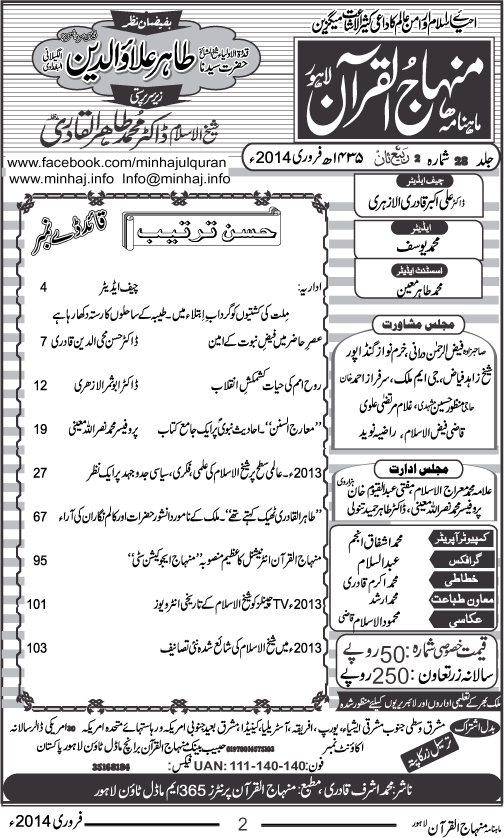 احیائے اسلام اور امن عالم کا داعی کثیر الاشاعت میگزین
ماہنامہ منہاج القرآن لاہور
بفیضانِ نظر
قدوۃ الاولیاء شیخ المشائخ
حضرت سیدنا طاہر علاؤالدین
زیر سرپرستی
شیخ الاسلام ڈاکٹر محمد طاہرالقادری
جلد 28 شمارہ 2 ربیع الثانی ۱۴۳۵ھ فروری 2014ء
www.facebook.com/minhajulquran
www.minhaj.info Info@minhaj.info
چیف ایڈیٹر
ڈاکٹر علی اکبر قادری الازہری
ایڈیٹر
محمد یوسف
اسسٹنٹ ایڈیٹر
محمد طاہر معین
مجلس مشاورت
صاحبزادہ فیض الرحمٰن درانی، خرم نواز گنڈاپور
شیخ زاہد فیاض، جی ایم ملک، سرفراز احمد خان
حاجی منظور حسین مشہدی، غلام مرتضیٰ علوی
قاضی فیض الاسلام، راضیہ نوید
مجلس ادارت
علامہ محمد معراج الاسلام، مفتی عبدالقیوم خان ہزاروی
پروفیسر محمد نصراللہ معینی، ڈاکٹر طاہر حمید تنولی
کمپیوٹر آپریٹر محمد اشفاق انجم
گرافکس عبدالسلام
خطاطی محمد اکرم قادری
معاون طباعت محمد ارشد
عکاسی محمود الاسلام قاضی
قیمت خصوصی شمارہ: 50 روپے
سالانہ زر تعاون: 250 روپے
ملک بھر کے تعلیمی اداروں اور لائبریریوں کیلئے منظور شدہ
حسن ترتیب
قائد ڈے نمبر
اداریہ: چیف ایڈیٹر 4
ملت کی کشتیوں کو گردابِ ابتلاء میں۔ طیبہ کے ساحلوں کا رستہ دکھا رہا ہے
عصر حاضر میں فیض نبوت کے امین ڈاکٹر حسن محی الدین قادری 7
روح امم کی حیات کشمکش انقلاب ڈاکٹر ابوثمر الازہری 12
’’معارج السنن‘‘۔ احادیث نبویؐ پر ایک جامع کتاب پروفیسر محمد نصراللہ معینی 19
2013ء۔ عالمی سطح پر شیخ الاسلام کی علمی، فکری، سیاسی جدوجہد پر ایک نظر 27
’’طاہرالقادری ٹھیک کہتے تھے‘‘۔ ملک کے نامور دانشور حضرات اور کالم نگاران کی آراء 67
منہاج القرآن انٹرنیشنل کا عظیم منصوبہ ’’منہاج ایجوکیشن سٹی‘‘ 95
2013ء TV چینلز کو شیخ الاسلام کے تاریخی انٹرویوز 101
2013ء میں شیخ الاسلام کی شائع شدہ نئی تصانیف 103
بدل اشتراک مشرق وسطی جنوب مشرقی ایشیا، یورپ، افریقہ، آسٹریلیا، کینیڈا، مشرق بعید جنوبی امریکہ و ریاستہائے متحدہ امریکہ 30 امریکی ڈالر سالانہ
ترسیل زر کا پتہ اکاؤنٹ نمبر 01970014575103 حبیب بینک منہاج القرآن برانچ ماڈل ٹاؤن لاہور پاکستان
فون: UAN: 111-140-140 فیکس: 35168184
ناشر: محمد اشرف قادری، مطبع: منہاج القرآن پرنٹرز 365 ایم ماڈل ٹاؤن لاہور
ماہنامہ منہاج القرآن لاہور 2 فروری 2014ء